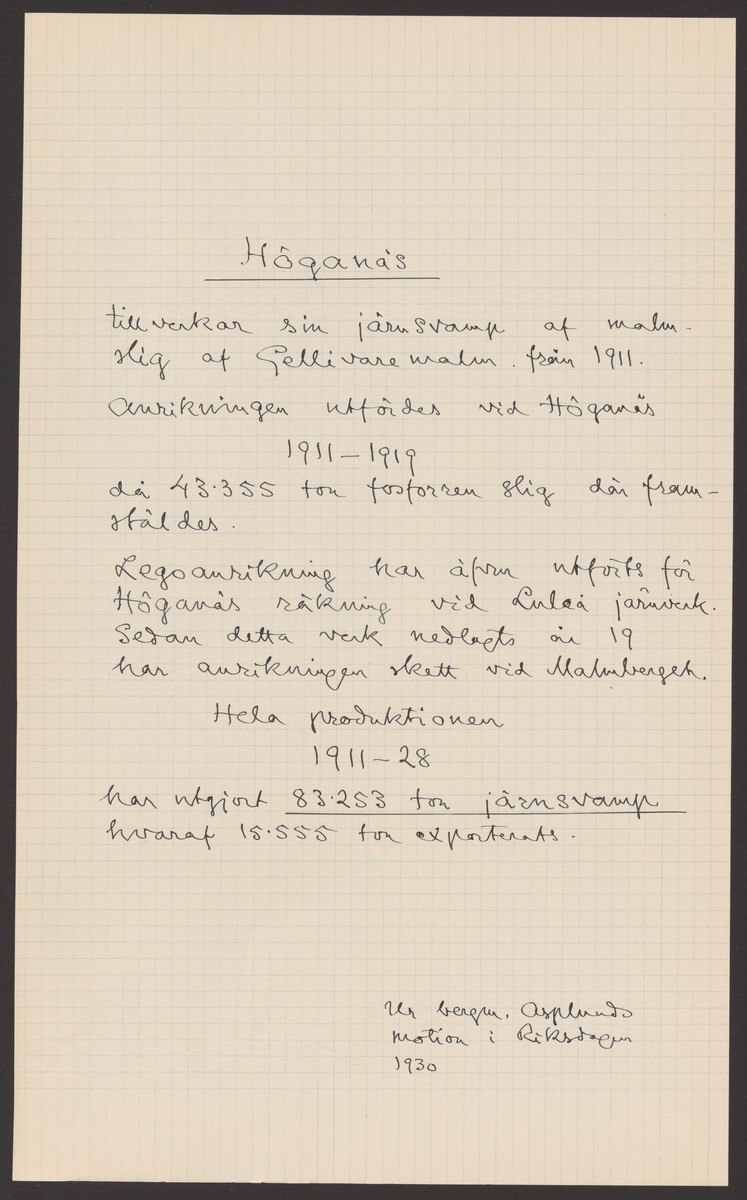 Höganäs
tillverkar sin järnsvamp af malm-
slig af Gellivare malm. från 1911.
Anrikningen utfördes vid Höganäs
1911–1919
då 43.355 ton fosforren slig där fram-
stäldes.
Legoanrikning har äfven utförts för
Höganäs räkning vid Luleå järnverk.
Sedan detta verk nedlagts år 19
har anrikningen skett vid Malmberget.
Hela produktionen
1911–28
har utgjort 83.253 ton järnsvamp
hvaraf 15.555 ton exporterats.
Ur bergm. Asplunds
motion i Riksdagen
1930